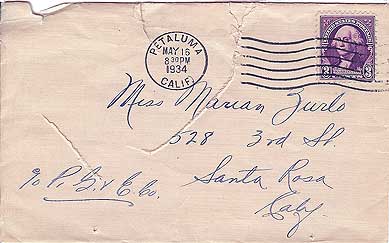 PETALUMA
MAY 16
8 30 PM
1934
CALIF.
UNITED STATES POSTAGE
3 3
Miss Marian Zurlo
528 3rd St.
c/o P. G. & E. Co.
Santa Rosa
Calif